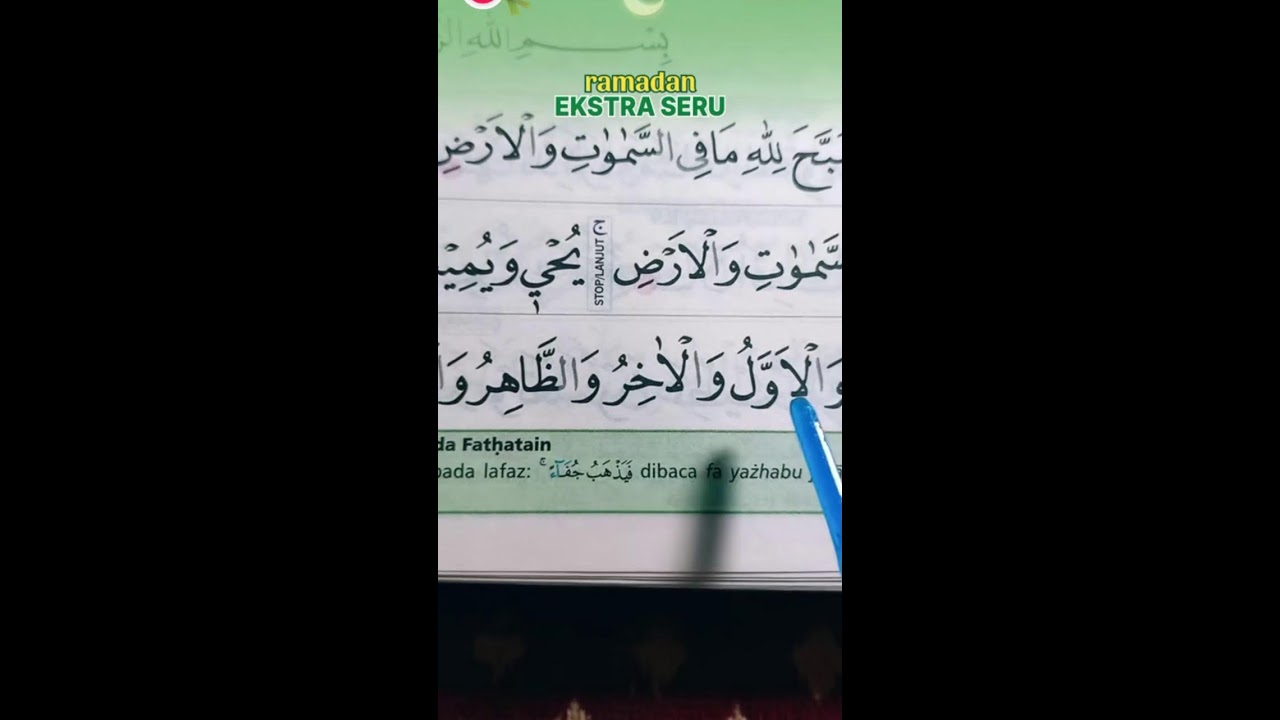 بِسْمِ اللهِ
ramadan
EKSTRA SERU
سَبَّحَ لِلّٰهِ مَا فِى السَّمٰوٰتِ وَالْاَرْضِ
السَّمٰوٰتِ وَالْاَرْضِ
STOP/LANJUT
يُحْيٖ وَيُمِيْ
وَالْاَوَّلُ وَالْاٰخِرُ وَالظَّاهِرُ وَا
da Fatḥatain
pada lafaz: فَيَذْهَبُ جُفَاۤءً ۚ dibaca fa yażhabu